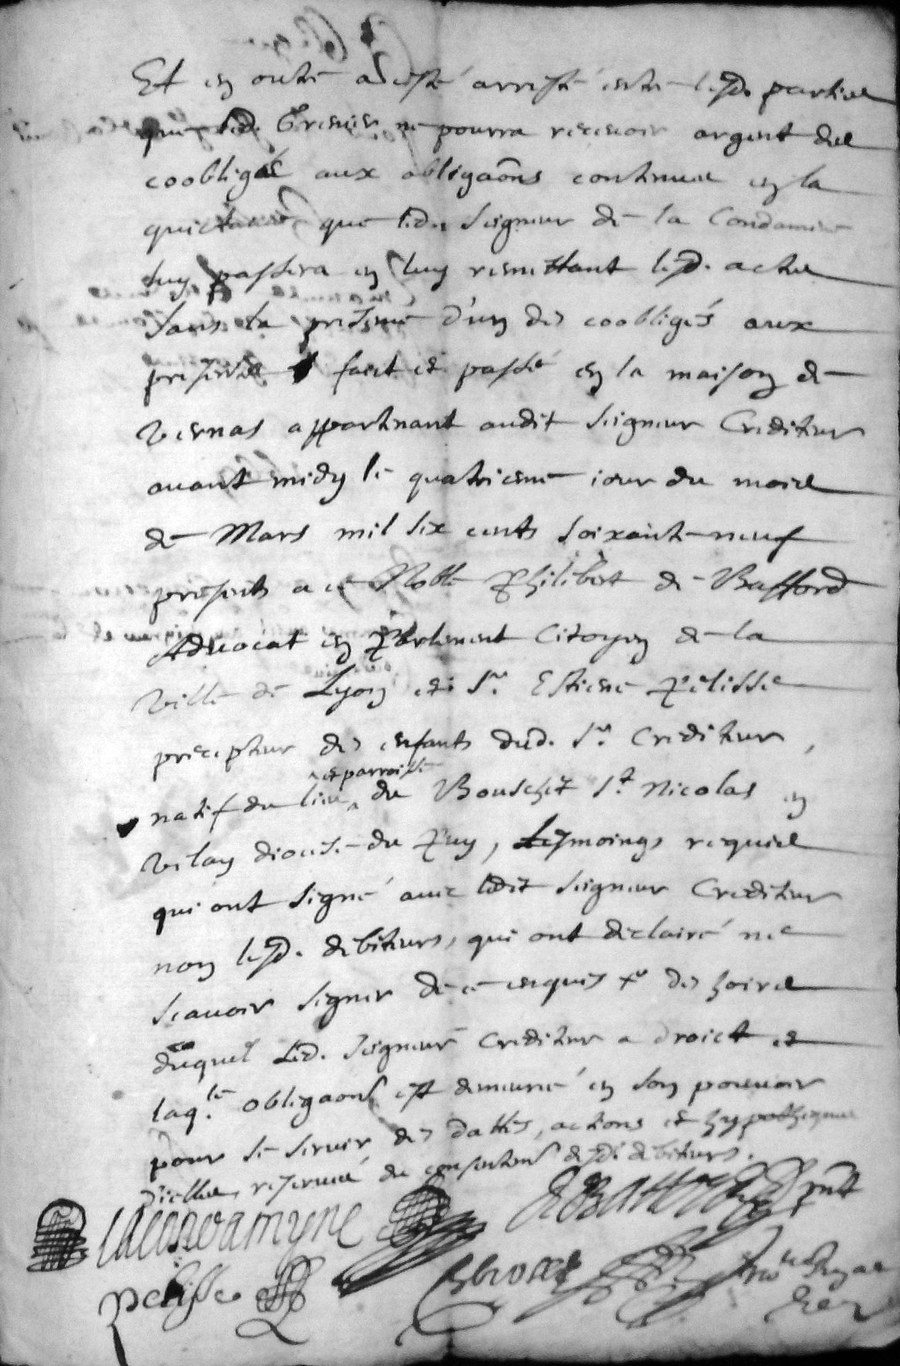 Et en outre a esté arresté entre lesd. parties
que led. Grenier ne pourra recevoir argent des
coobligés aux obligaons contenues en la
quictance que led. Seigneur de la Condamine
luy passera en luy remettant lesd. actes
sans la presence d'un des coobligés aux
presentes faict et passé en la maison de
Vernas appartenant audit Seigneur Crediteur
avant midy le quatriesme iour du mois
de Mars mil six cents soixante neuf
presents a ce Noble Philibert de Bafford
Advocat en Parlement Citoyen de la
Ville de Lyon et Sr. Estiene Pelisse
precepteur des enfants dud. Sr. Crediteur,
natif du lieu et parroisse du Bouschet St. Nicolas en
Velay diocese du Puy, tesmoings requis
qui ont signé avec ledit Seigneur Crediteur
non lesd. debiteurs, qui ont declairé ne
scavoir signer de ce enquis des hoirs
duquel led. Seigneur Crediteur a droict et
laq.le obligaon est demeuré en son pouvoir
pour se servir des dattes, actions et hypotheques
d'icelles, reservé du consentem. desd. debiteurs.
Lacondamyne de Bafford pnt
Pelisse royal